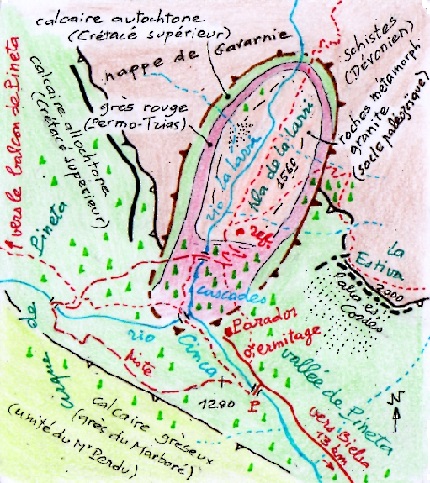 calcaire autochtone
(Crétacé supérieur)
nappe de Gavarnie
schistes
(Dévonien)
calcaire allochtone
(Crétacé supérieur)
grès rouge
(Permo-Trias)
roches métamorphi
granite
(socle paléozoïque)
vers le balcon de Pineta
rio la Larri
Pla de la Larri
1560
refs
cascades
la Estiva
2000
cirque de Pineta
rio Cinca
piste
Parador
ermitage
vallée de Pineta
vers Bielsa
13 km
P.
1290
N
calcaire gréseux
(grès du Marboré)
(unité du Mt Perdu)